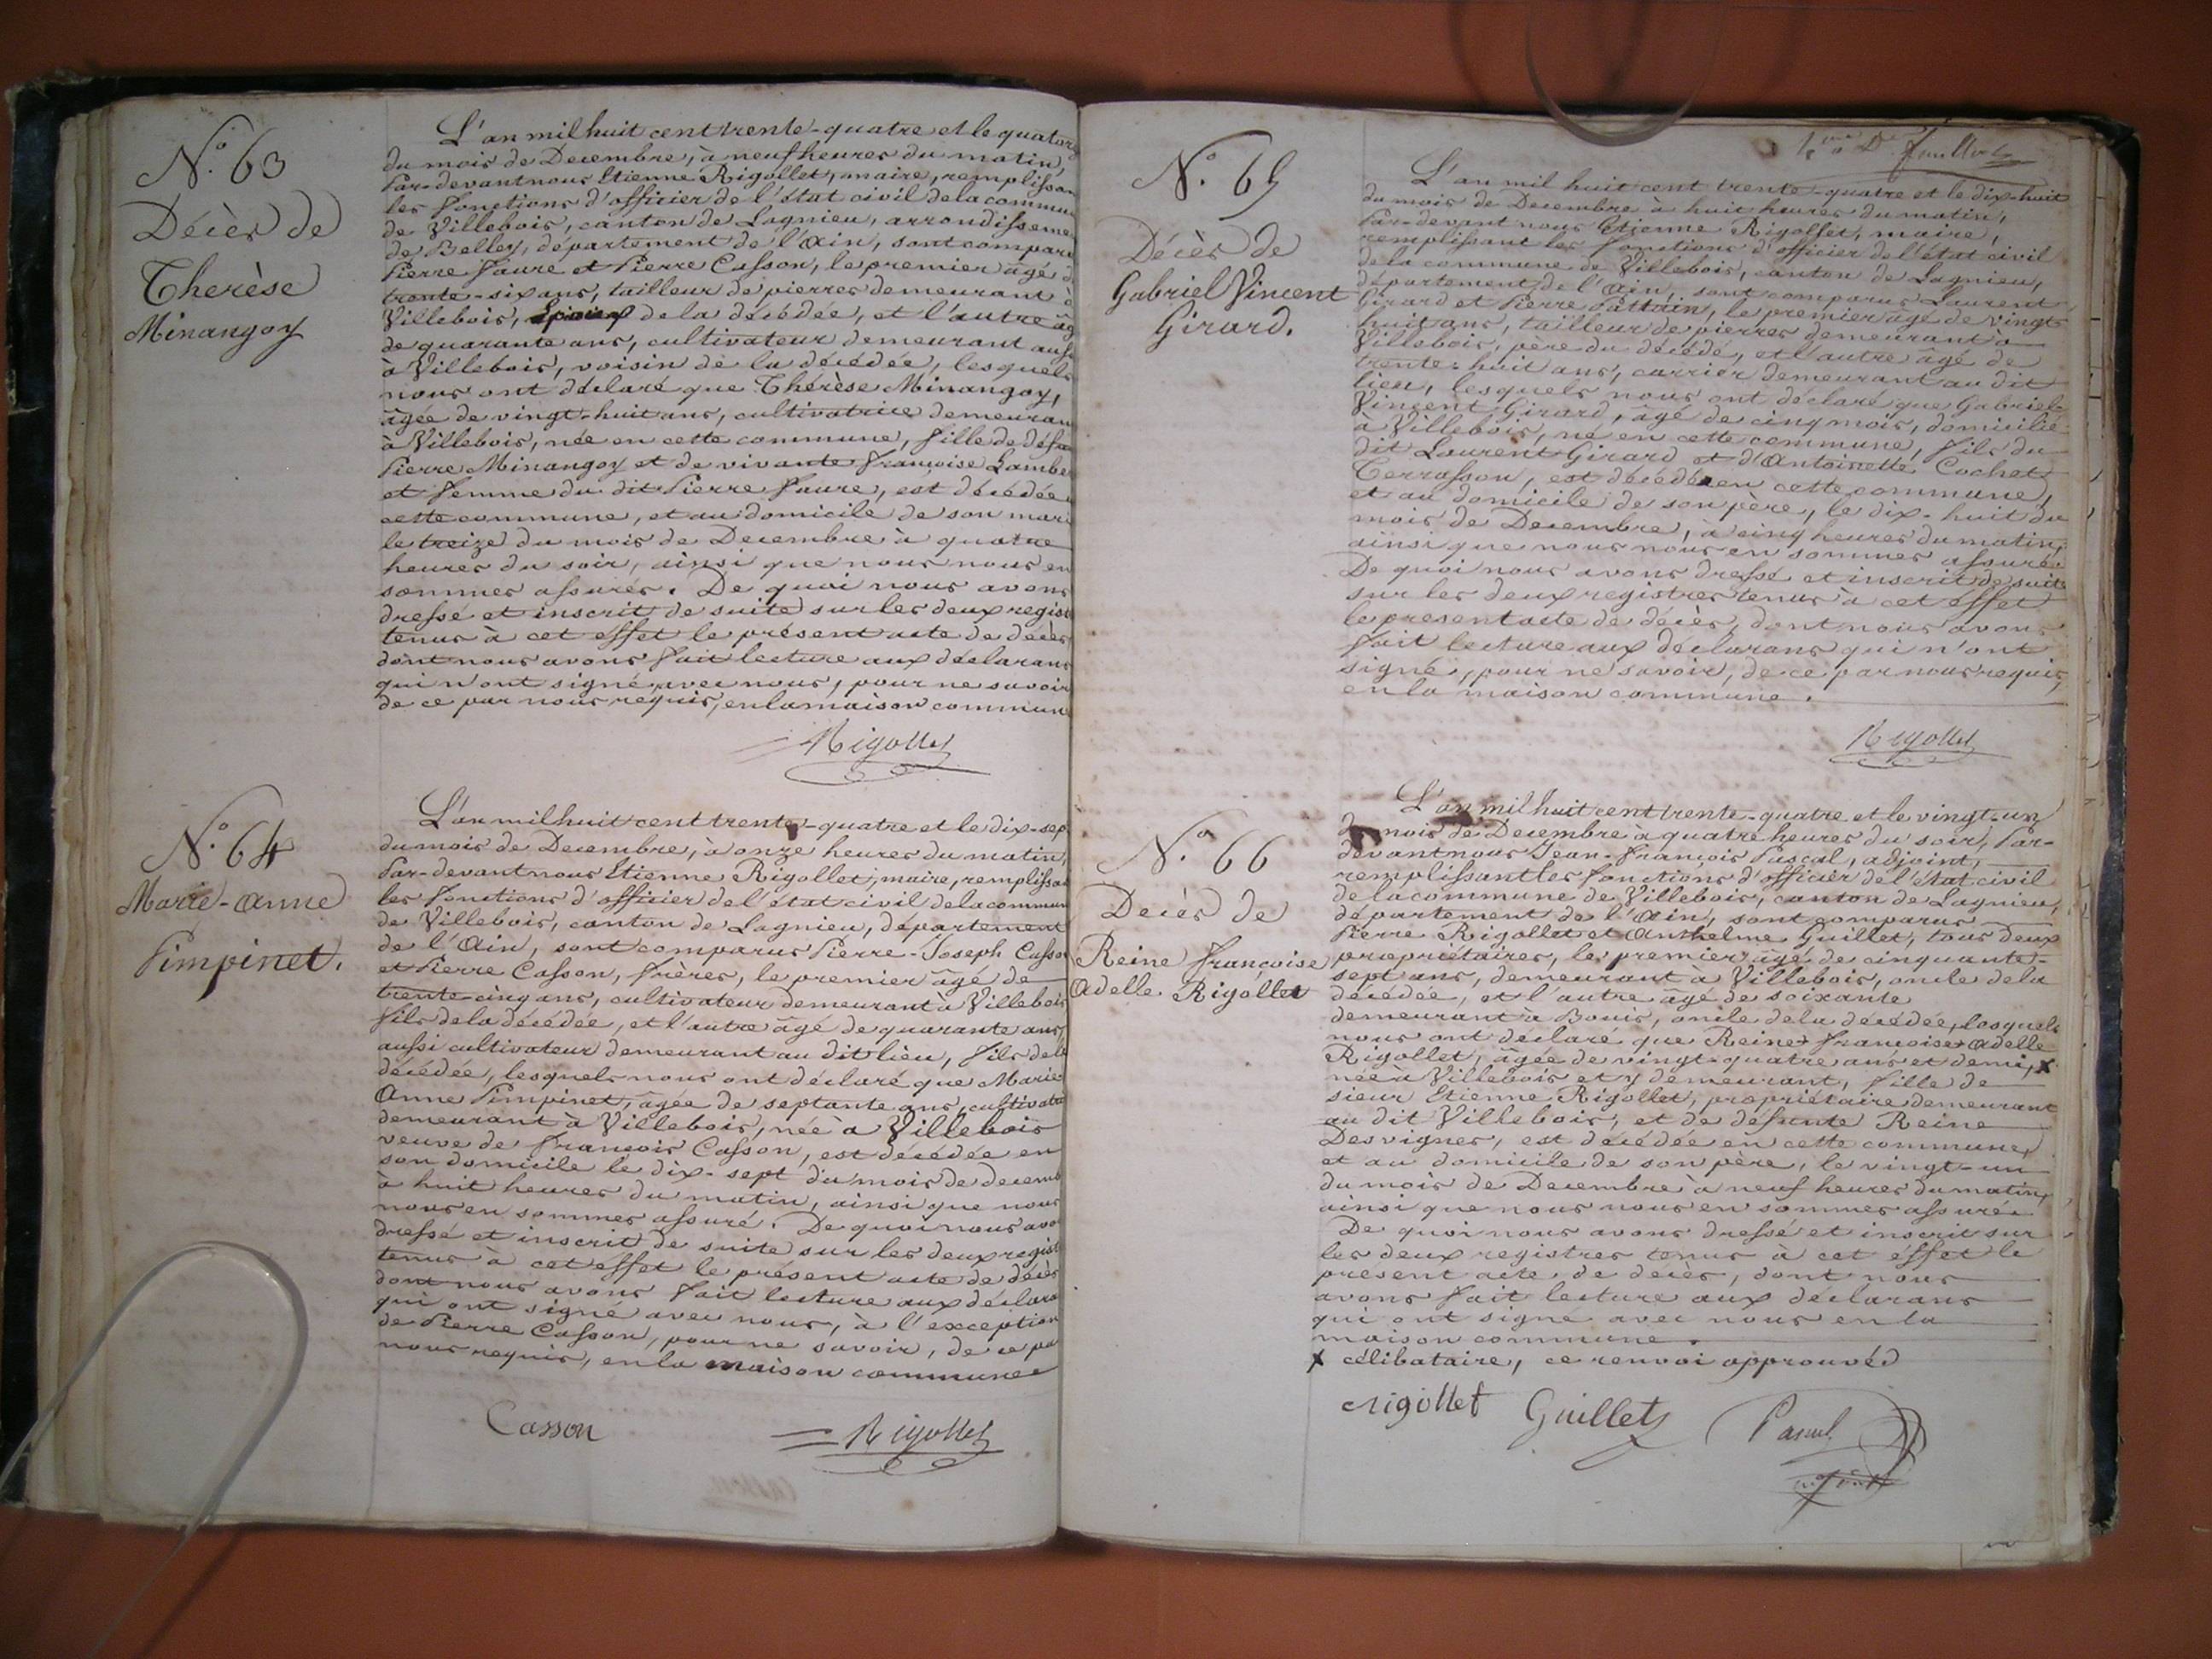 N.o 63
Décès de
Therèse
Minangoy
L'an mil huit cent trente-quatre et le quatorz
du mois de Decembre, à neuf heures du matin,
Par-devant nous Etienne Rigollet, maire, remplissan
les fonctions d'officier de l'état civil de la commun
de Villebois, canton de Lagnieu, arrondisseme
de Belley, département de l'ain, sont compar
Pierre Faure et Pierre Casson, le premier âgé d
trente-six ans, tailleur de pierres demeurant à
Villebois, Epoux de la décédée, et l'autre âg
de quarante ans, cultivateur demeurant auss
à Villebois, voisin de la décédée, lesquels
nous ont déclaré que Thérèse Minangoy,
âgée de vingt-huit ans, cultivatrice demeuran
à Villebois, née en cette commune, fille de défu
Pierre Minangoy et de vivante françoise Lambe
et femme du dit Pierre Faure, est décédée
cette commune, et au domicile de son mari
le treize du mois de Decembre à quatre
heures du soir, ainsi que nous nous en
sommes assurés. De quoi nous avons
dressé et inscrit de suite sur les deux regist
tenus à cet effet le présent acte de décès
dont nous avons fait lecture aux déclarans
qui n'ont signé avec nous, pour ne savoir
de ce par nous requis, en la maison commun
Rigollet
N.o 64
Marie-anne
Pimpinet.
L'an mil huit cent trente-quatre et le dix-sep
du mois de Decembre, à onze heures du matin,
Par-devant nous Etienne Rigollet, maire, remplissan
les fonctions d'officier de l'état civil de la commun
de Villebois, canton de Lagnieu, département
de l'ain, sont comparus Pierre-Joseph Casson
et Pierre Casson, frères, le premier âgé de
trente-cinq ans, cultivateur demeurant à Villebois
fils de la décédée, et l'autre âgé de quarante ans,
aussi cultivateur demeurant au dit lieu, fils de la
décédée, lesquels nous ont déclaré que Marie
Anne Pimpinet, âgée de septante ans, cultivatri
demeurant à Villebois, née a Villebois
veuve de françois Casson, est décédée en
son domicile le dix-sept du mois de decemb
à huit heures du matin, ainsi que nous
nous en sommes assuré. De quoi nous avo
dressé et inscrit de suite sur les deux regist
tenus à cet effet le présent acte de décès
dont nous avons fait lecture aux déclara
qui ont signé avec nous, à l'exception
de Pierre Casson, pour ne savoir, de ce pa
nous requis, en la maison commune
Casson
Rigollet
N.o 65
Décès de
Gabriel Vincent
Girard.
L'an mil huit cent trente-quatre et le dix-huit
du mois de Decembre à huit heures du matin,
Par-devant nous Etienne Rigollet, maire,
remplissant les fonctions d'officier de l'état civil
de la commune de Villebois, canton de Lagnieu,
département de l'ain, sont comparus Laurent
Girard et Pierre Pattain, le premier âgé de vingt
huit ans, tailleur de pierres demeurant à
Villebois, père du décédé, et l'autre âgé de
trente-huit ans, carrier demeurant au dit
lieu, lesquels nous ont déclaré que Gabriel
Vincent Girard, âgé de cinq mois, domicilié
à Villebois, né en cette commune, fils du
dit Laurent Girard et d'Antoinette Cochet
Terrasson, est décédé en cette commune,
et au domicile de son père, le dix-huit du
mois de Decembre, à cinq heures du matin,
ainsi que nous nous en sommes assuré.
De quoi nous avons dressé et inscrit de suite
sur les deux registres tenus à cet effet
le présent acte de décès, dont nous avons
fait lecture aux déclarans qui n'ont
signé, pour ne savoir, de ce par nous requis,
en la maison commune.
Rigollet
N.o 66
Decès de
Reine françoise
Adelle Rigollet
L'an mil huit cent trente-quatre et le vingt-un
du mois de Decembre à quatre heures du soir, Par-
devant nous Jean-françois Pascal, adjoint,
remplissant les fonctions d'officier de l'état civil
de la commune de Villebois, canton de Lagnieu,
département de l'ain, sont comparus
Pierre Rigollet et Anthelme Guillet, tous deux
propriétaires, le premier âgé de cinquante-
sept ans, demeurant à Villebois, oncle de la
décédée, et l'autre âgé de soixante
demeurant à Bouis, oncle de la décédée, lesquels
nous ont déclaré que Reine françoise adelle
Rigollet, âgée de vingt-quatre ans et demi, x
née à Villebois et y demeurant, fille de
sieur Etienne Rigollet, propriétaire demeurant
au dit Villebois, et de défunte Reine
Desvignes, est décédée en cette commune,
et au domicile de son père, le vingt-un
du mois de Decembre à neuf heures du matin,
ainsi que nous nous en sommes assuré.
De quoi nous avons dressé et inscrit sur
les deux registres tenus à cet effet le
présent acte de décès, dont nous
avons fait lecture aux déclarans
qui ont signé avec nous en la
maison commune.
x célibataire, ce renvoi approuvé
Rigollet Guillet Pascal